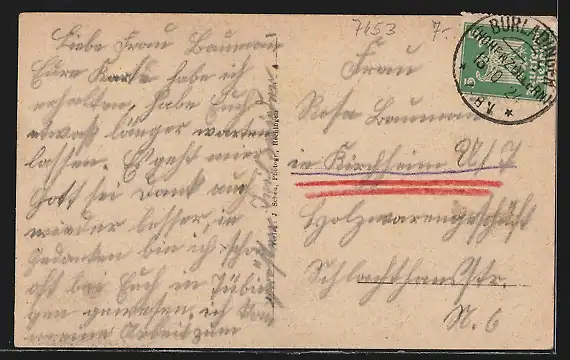 Liebe Frau Bauman
Eure Karte habe ich
erhalten, habe Euch
etwas länger warten
lassen. Es geht mir
Gott sei Dank auch
wieder besser, in
Gedanken bin ich schon
oft bei Euch in Tübin
gen gewesen, ich
meine Arbeit zum
Verlag J. Schön, Photogr. Hechingen
7453
7.-
BURLADINGEN
(HOHENZOLLERN)
5
Frau
Rosa Bauman
in Kirchheim u/T
Holzwarengeschäft
Schlachthausstr.
N. 6